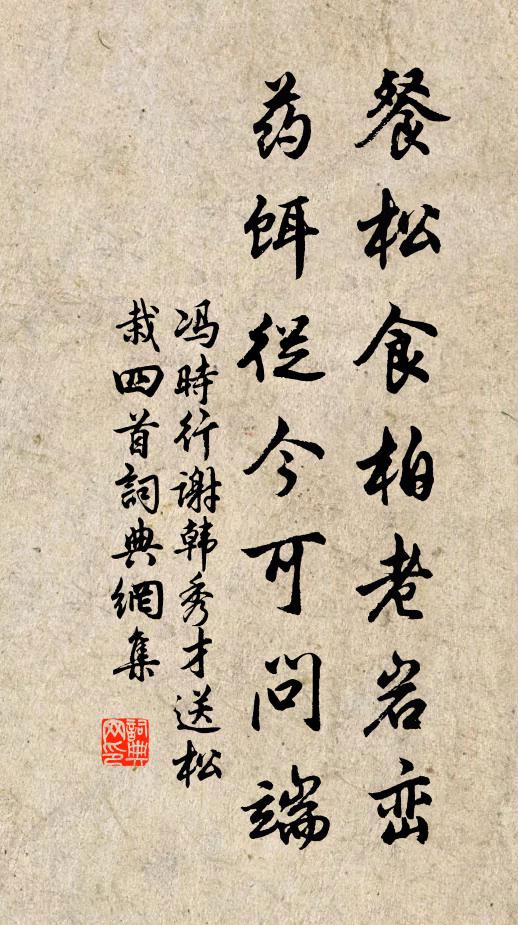 餐松食柏老岩峦
药饵從今可问端
冯時行谢韩秀才送松
栽四首詞典網集
詞典网印